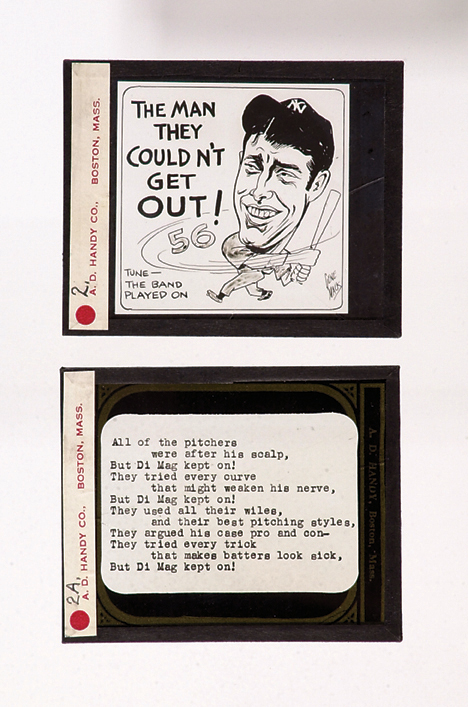 2.
A. D. HANDY CO., BOSTON, MASS.
THE MAN
THEY
COULDN'T
GET
OUT!
NY
56
TUNE—
THE BAND
PLAYED ON
GENE
MACK
2A,
A. D. HANDY CO., BOSTON, MASS.
All of the pitchers
were after his scalp,
But Di Mag kept on!
They tried every curve
that might weaken his nerve,
But Di Mag kept on!
They used all their wiles,
and their best pitching styles,
They argued his case pro and con—
They tried every trick
that makes batters look sick,
But Di Mag kept on!
A. D. HANDY, Boston, Mass.